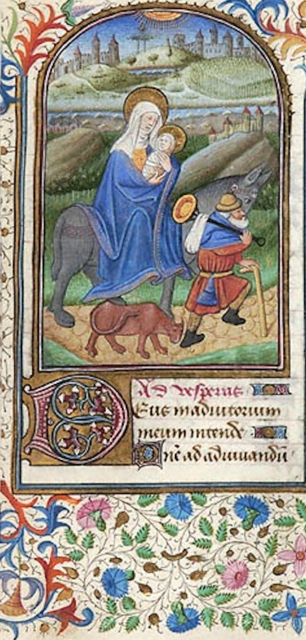 Ad vesperas
DEus in adiutorium
meum intende
Dñe ad adiuvandū